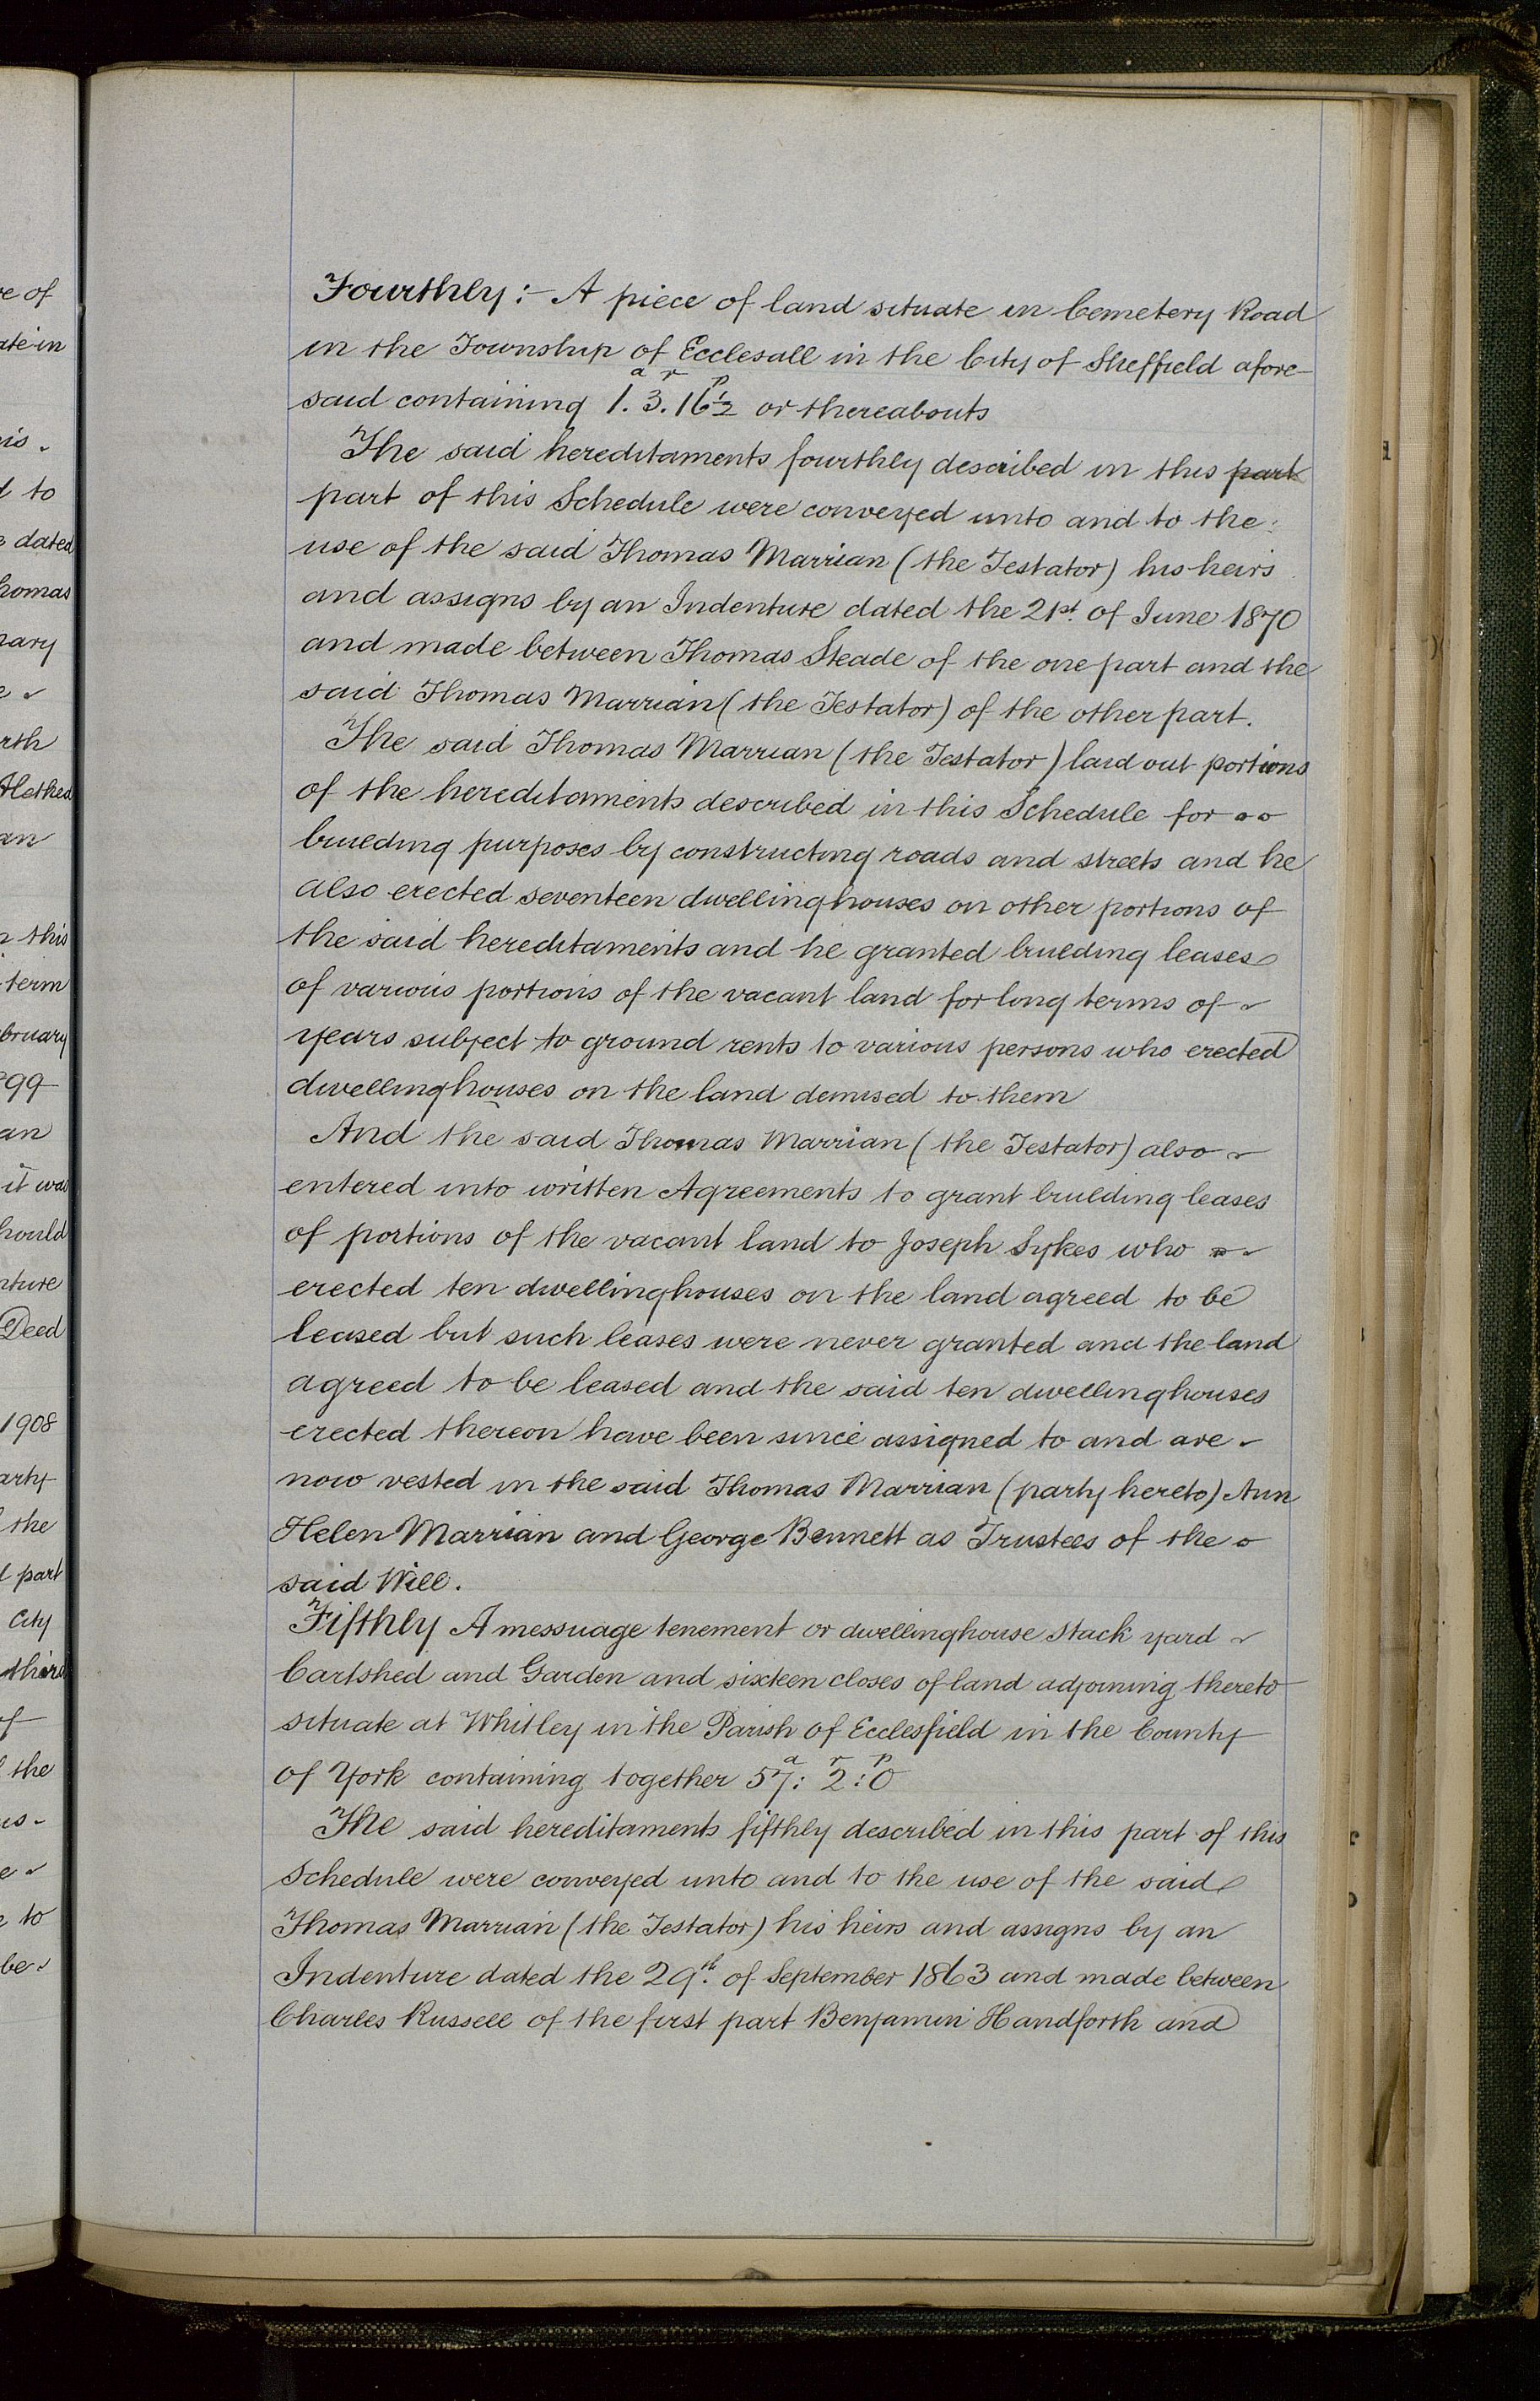 Fourthly:- A piece of land situate in Cemetery Road
in the Township of Ecclesall in the City of Sheffield afore-
said containing 1.a 3.r 16½p or thereabouts
The said hereditaments fourthly described in this part
part of this Schedule were conveyed unto and to the
use of the said Thomas Marrian (the Testator) his heirs
and assigns by an Indenture dated the 21st. of June 1870
and made between Thomas Steade of the one part and the
said Thomas Marrian (the Testator) of the other part.
The said Thomas Marrian (the Testator) laid out portions
of the hereditaments described in this Schedule for
building purposes by constructing roads and streets and he
also erected seventeen dwellinghouses on other portions of
the said hereditaments and he granted building leases
of various portions of the vacant land for long terms of
years subject to ground rents to various persons who erected
dwellinghouses on the land demised to them
And the said Thomas Marrian (the Testator) also
entered into written Agreements to grant building leases
of portions of the vacant land to Joseph Sykes who
erected ten dwellinghouses on the land agreed to be
leased but such leases were never granted and the land
agreed to be leased and the said ten dwellinghouses
erected thereon have been since assigned to and are
now vested in the said Thomas Marrian (party hereto) Ann
Helen Marrian and George Bennett as Trustees of the
said Will.
Fifthly A messuage tenement or dwellinghouse stack yard
Cartshed and Garden and sixteen closes of land adjoining thereto
situate at Whitley in the Parish of Ecclesfield in the County
of York containing together 57a: 2r: 0p
The said hereditaments fifthly described in this part of this
Schedule were conveyed unto and to the use of the said
Thomas Marrian (the Testator) his heirs and assigns by an
Indenture dated the 29th. of September 1863 and made between
Charles Russell of the first part Benjamin Handforth and